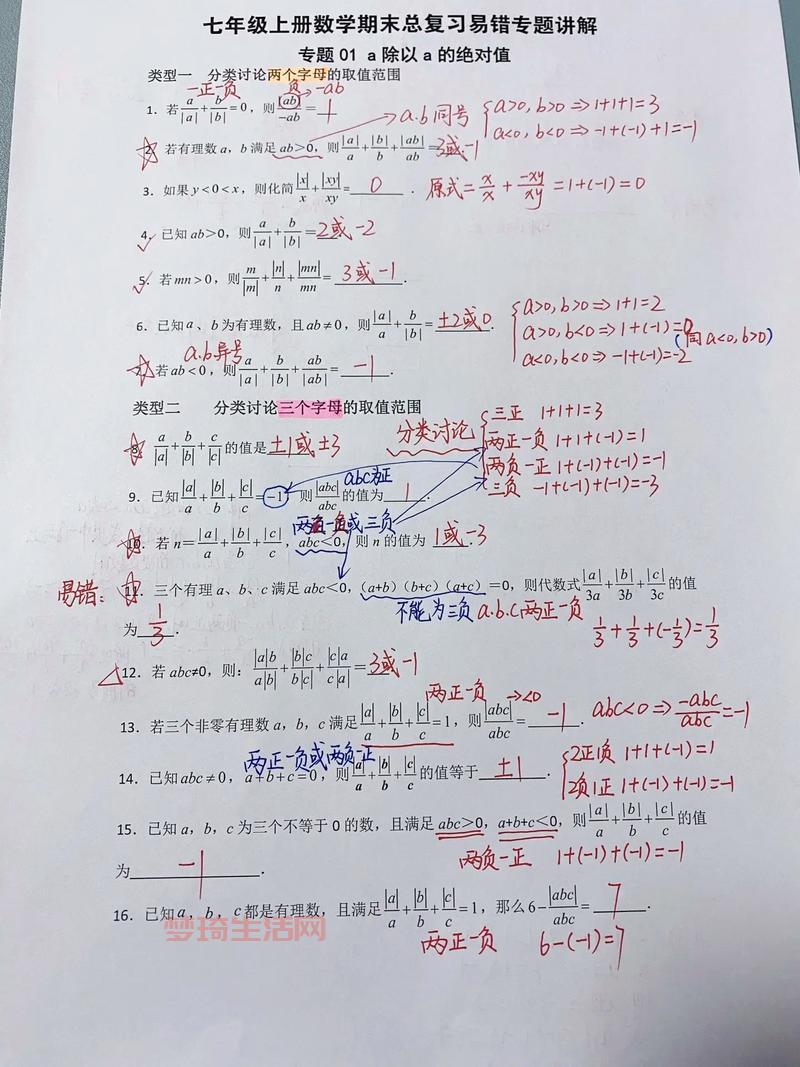 七年级上册数学期末总复习易错专题讲解
专题 01 a 除以 a 的绝对值
类型一 分类讨论两个字母的取值范围
一正一负 负→-ab
1. 若a/|a|+b/|b|=0,则|ab|/-ab=1
a.b同号
a>0,b>0⇒1+1+1=3
a<0,b<0⇒-1+(-1)+1=-1
2. 若有理数 a,b 满足 ab>0,则|a|/a+|b|/b+|ab|/ab=3或-1
3. 如果 y<0<x,则化简|x|/x+|xy|/xy=0.
原式=x/x+-xy/xy=1+(-1)=0
4. 已知 ab>0,则a/|a|+b/|b|=2或-2
5. 若 mn>0,则m/|m|+|n|/n+|mn|/mn=3或-1.
6. 已知 a、b 为有理数,且 ab≠0,则|a|/a+b/|b|=±2或0.
a>0,b>0⇒1+1=2
a>0,b<0⇒1+(-1)=0
(同a<0,b>0)
a<0,b<0⇒-1+(-1)=-2
a.b异号
7. 若 ab<0,则a/|a|+b/|b|+ab/|ab|=-1.
类型二 分类讨论三个字母的取值范围
8. a/|a|+b/|b|+c/|c|的值是±1或±3
分类讨论
三正 1+1+1=3
两正一负 1+1+(-1)=1
两负一正 1+(-1)+(-1)=-1
三负 -1+(-1)+(-1)=-3
abc为正
9. 已知|a|/a+|b|/b+|c|/c=-1,则|abc|/abc的值为1.
两正一负或三负
10. 若 n=|a|/a+|b|/b+|c|/c,abc<0,则 n 的值为1或-3
易错:
11. 三个有理 a、b、c 满足 abc<0,(a+b)(b+c)(a+c)=0,则代数式|a|/3a+|b|/3b+|c|/3c的值
不能为三负 a.b.c两正一负
为1/3.
1/3+1/3+(-1/3)=1/3
12. 若 abc≠0,则:|a|b/a|b|+|b|c/b|c|+|c|a/c|a|=3或-1
两正一负 →<0
13. 若三个非零有理数 a,b,c 满足|a|/a+|b|/b+|c|/c=1,则|abc|/abc=-1.
abc<0⇒-abc/abc=-1
两正一负或两负一正
14. 已知 abc≠0,a+b+c=0,则|a|/a+|b|/b+|c|/c的值等于±1.
2正1负 1+1+(-1)=1
2负1正 1+(-1)+(-1)=-1
15. 已知 a,b,c 为三个不等于 0 的数,且满足 abc>0,a+b+c<0,则|a|/a+|b|/b+|c|/c的值
为-1.
两负一正 1+(-1)+(-1)=-1
16. 已知 a,b,c 都是有理数,且满足|a|/a+|b|/b+|c|/c=1,那么 6-|abc|/abc=7.
梦琦生活网
两正一负 6-(-1)=7